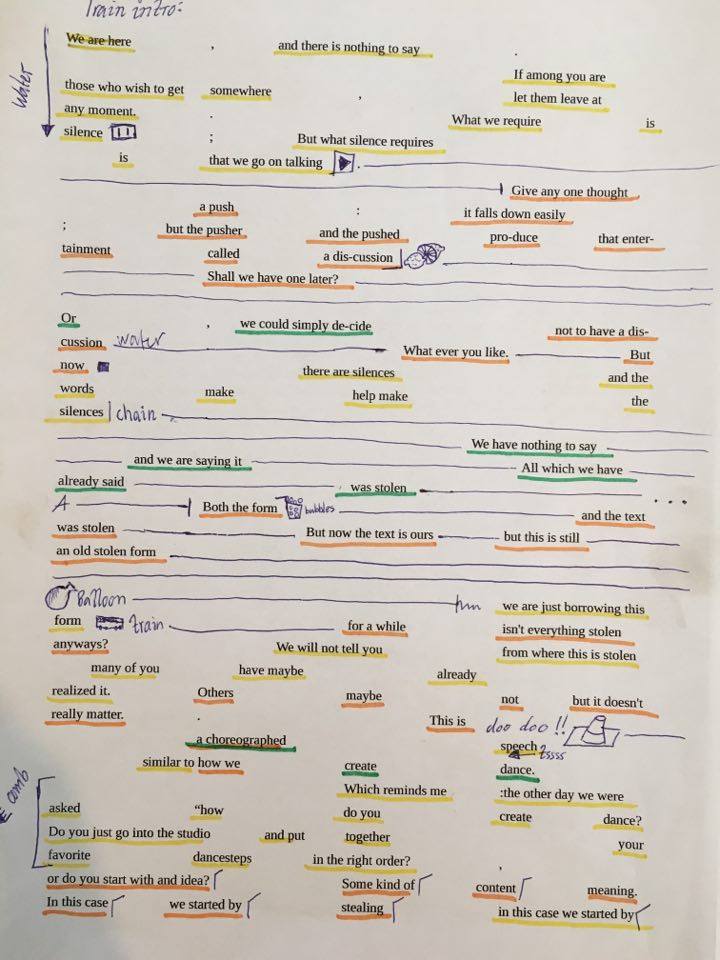 Train intro:
We are here , and there is nothing to say .
Water
If among you are
those who wish to get somewhere , let them leave at
any moment. . What we require is
silence ; But what silence requires
is that we go on talking .
Give any one thought
a push : it falls down easily
; but the pusher and the pushed pro-duce that enter-
tainment called a dis-cussion
Shall we have one later?
Or , we could simply de-cide not to have a dis-
cussion water What ever you like. But
now there are silences and the
words make help make the
silences chain
We have nothing to say
and we are saying it All which we have
already said was stolen ...
A Both the form bubbles and the text
was stolen But now the text is ours but this is still
an old stolen form
Balloon hm we are just borrowing this
form train for a while isn't everything stolen
anyways? We will not tell you from where this is stolen
many of you have maybe already
realized it. Others maybe not but it doesn't
really matter. . This is doo doo !!
a choreographed speech tssss
similar to how we create dance.
comb
Which reminds me :the other day we were
asked “how do you create dance?
Do you just go into the studio and put together your
favorite dancesteps in the right order? ,
or do you start with and idea? Some kind of content meaning.
In this case we started by stealing in this case we started by